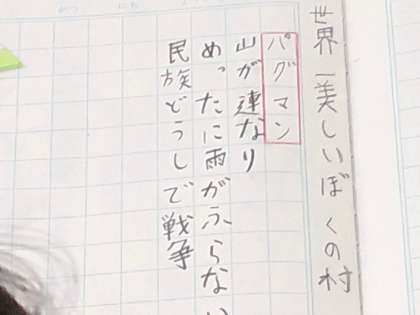 世界一美しいぼくの村
パグマン
山が連なり
めったに雨がふらない
民族どうしで戦争